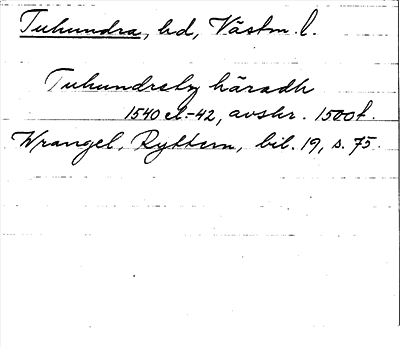 Tuhundra, hd, Västm. l.
Tuhundretz häradh
1540 el.-42, avskr. 1500t.
Wrangel, Ryttern, bil. 19, s. 75.